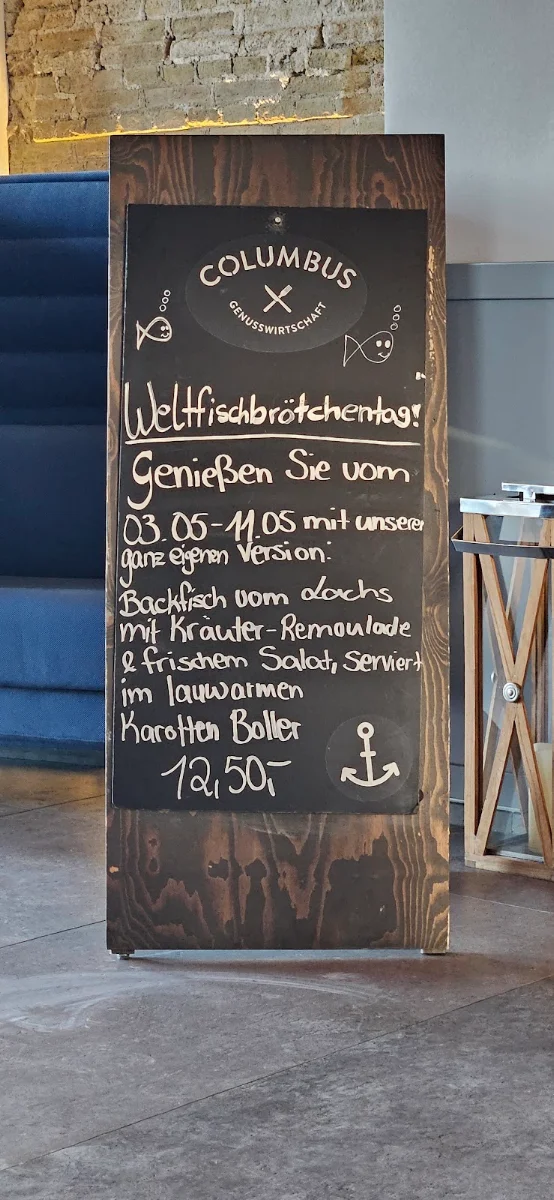 COLUMBUS
GENUSSWIRTSCHAFT
Weltfischbrötchentag!
Genießen Sie vom
03.05-11.05 mit unserer
ganz eigenen Version:
Backfisch vom Lachs
mit Kräuter-Remoulade
& frischem Salat, Serviert
im lauwarmen
Karotten Boller
12,50,-